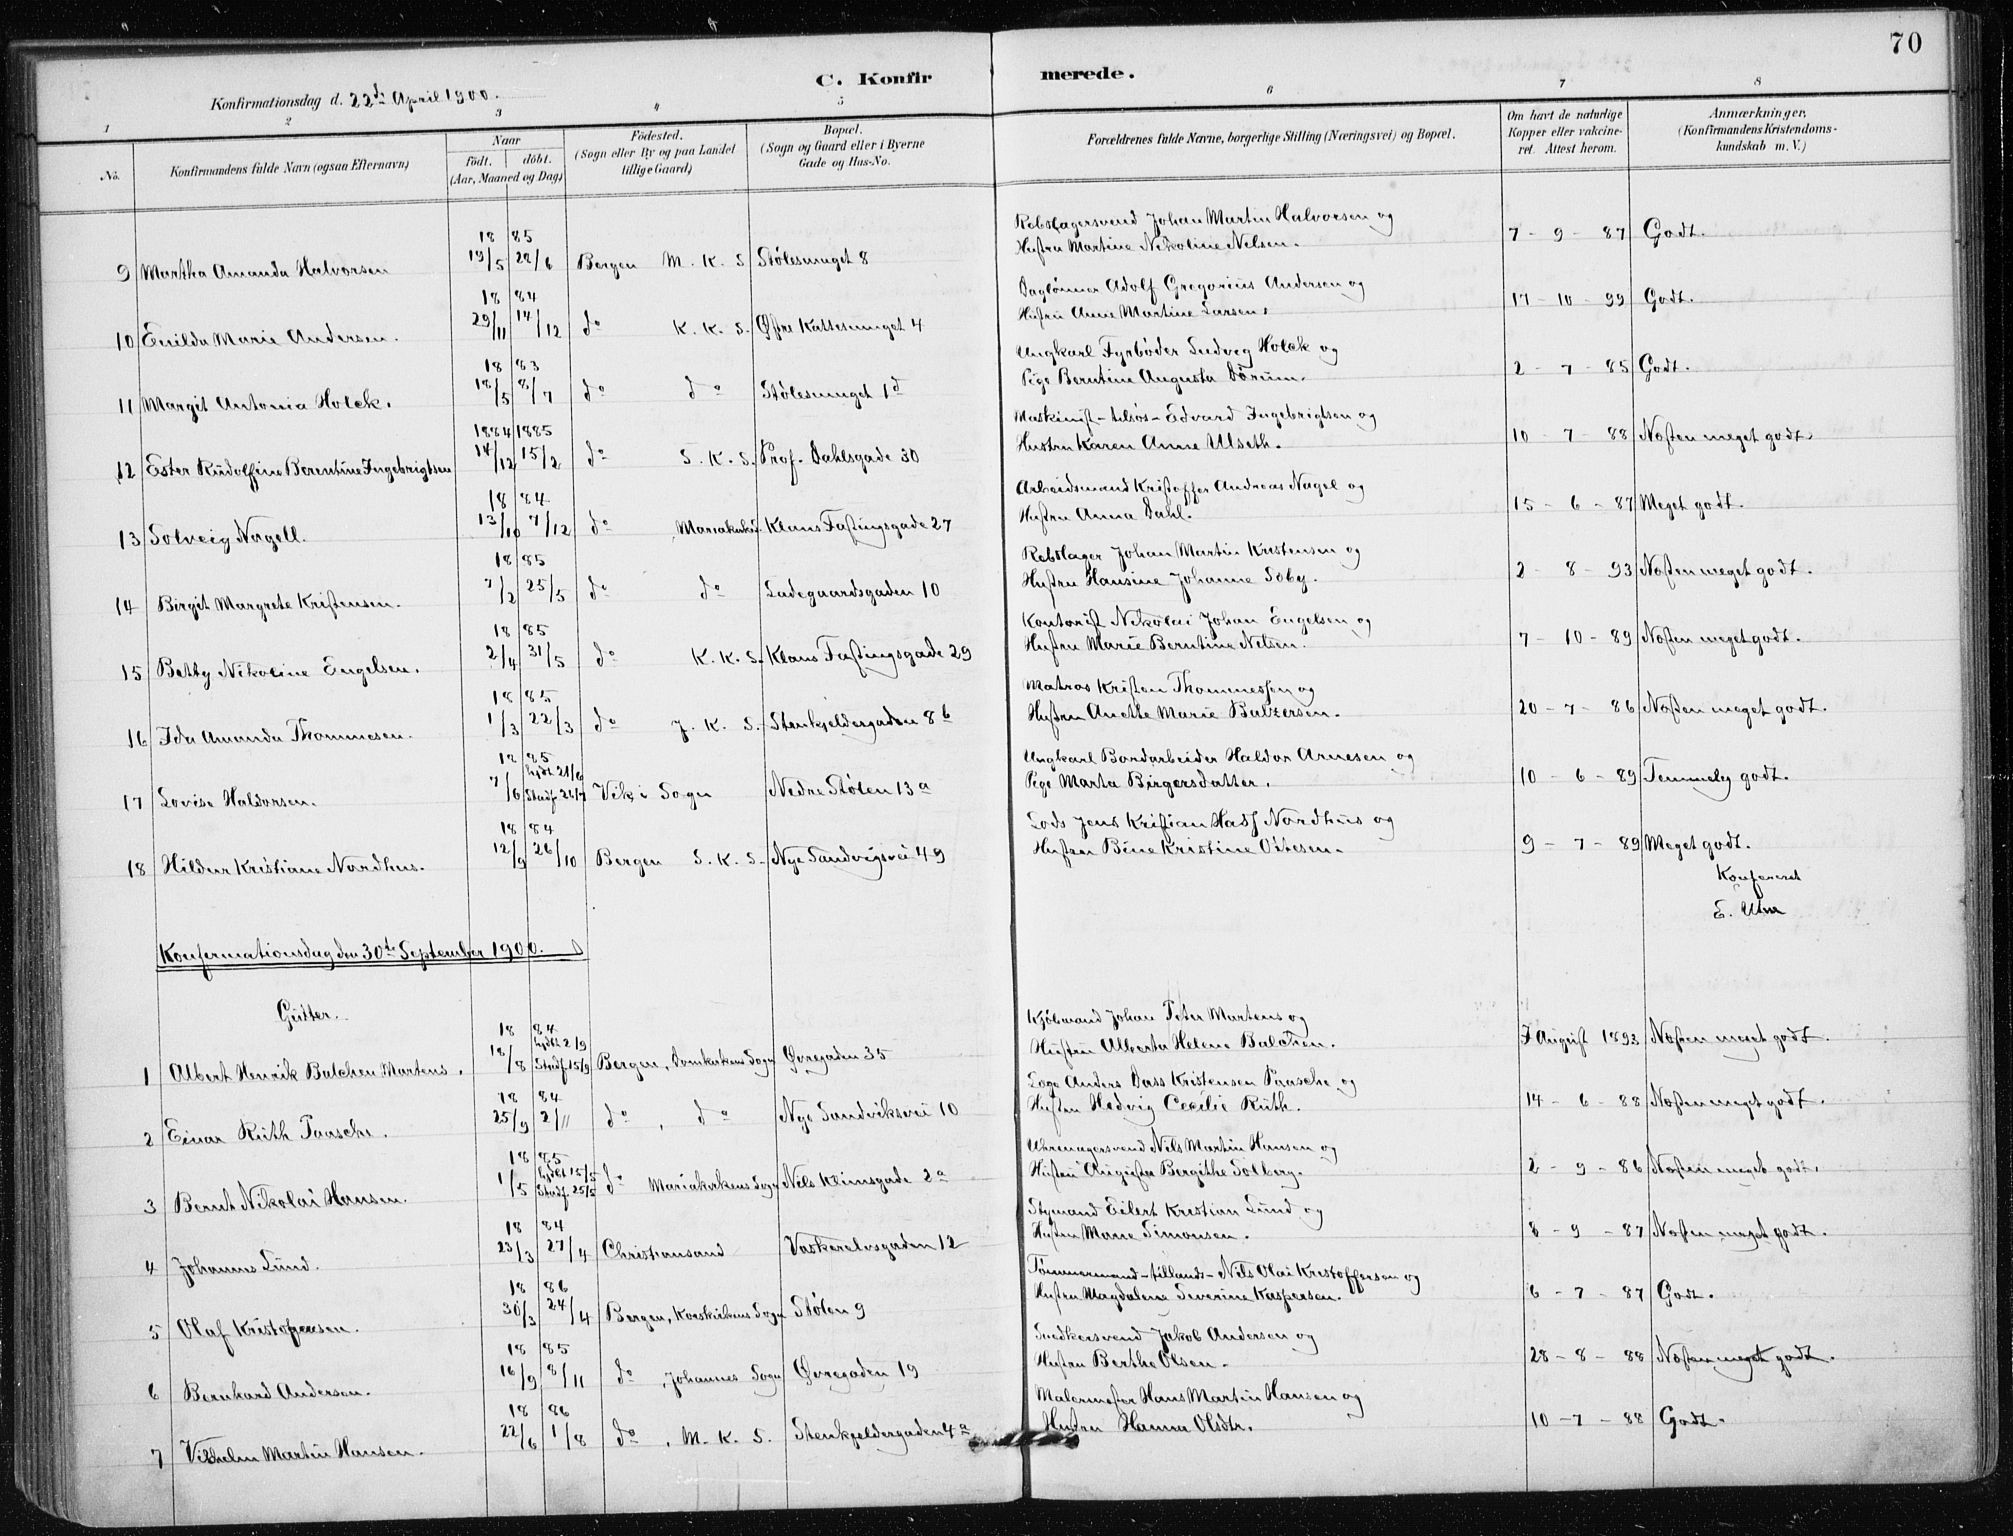 70
C. Konfir merede.
Konfirmationsdag d. 22de April 1900.
1 2 3 4 5 6 7 8
No.
Konfirmandens fulde Navn (ogsaa Efternavn)
Naar
födt. döbt.
(Aar, Maaned og Dag)
Födested.
(Sogn eller By og paa Landet
tillige Gaard)
Bopæl.
(Sogn og Gaard eller i Byerne
Gade og Hus-No.
Forældrenes fulde Navne, borgerlige Stilling (Næringsvei) og Bopæl.
Om havt de naturlige
Kopper eller vakcine-
ret. Attest herom.
Anmærkninger,
(Konfirmandens Kristendoms-
kundskab m. V.)
Rebslagersvend Johan Martin Halvorsen og
18 85
9 Martha Amanda Halvorsen 19/5 28/6 Bergen M. K. S Stølesmuget 8 Hustru Martine Nikoline Nelsen. 7 - 9 - 87 Godt.
Daglønner Adolf Gregorius Andersen og
18 84
10 Enilda Marie Andersen. 29/11 14/12 do K. K. S. Øfre Kattesmuget 4 Hustru Anne Martine Larsen. 17 - 10 - 99 Godt.
Ungkarl Fyrbøder Ludvig Holck og
18 83
11 Margit Antonia Holck. 18/5 8/7 do do Stølesmuget 1d Pige Berntine Augusta Dörum. 2 - 7 - 85 Godt.
Maskinist - tilsøs - Edvard Ingebrigtsen og
1884 1885
12 Ester Rüdolfine Berentine Ingebrigtsen 14/12 15/2 do S. K. S. Prof. Dahlsgade 30 Hustru Karen Anne Ulseth. 10 - 7 - 88 Næsten meget godt.
Arbeidsmand Kristoffer Andreas Nagel og
18 84
13 Solveig Nagell. 13/10 7/12 do Mariakirkes. Klaus Fastingsgade 27 Hustru Anna Dahl. 15 - 6 - 87 Meget godt.
Rebslager Johan Martin Kristensen og
18 85
14 Birgit Margrete Kristensen. 7/2 25/5 do do Ladegaardsgaden 10 Hustru Hansine Johanne Søby. 2 - 8 - 93 Næsten meget godt.
Kontorist Nikolai Johan Engelsen og
18 85
15 Betty Nikoline Engelsen. 2/4 31/5 do K. K. S. Klaus Fastingsgade 29 Hustru Marie Berntine Nelsen. 7 - 10 - 89 Næsten meget godt.
Matros Kristen Thommessen og
18 85
16 Ida Amanda Thommesen. 1/3 22/3 do J. K. S. Stenkjeldergaden 8b Hustru Anette Marie Balzersen. 20 - 7 - 86 Næsten meget godt.
Ungkarl Bordarbeider Haldor Arnesen og
18 85
17 Lovise Haldorsen. 7/6 hjdbt 21/6 Stadf. 26/7 Vik i Sogn Nedre Støten 13a Pige Marta Birgersdatter. 10 - 6 - 89 Temmelig godt.
Lods Jens Kristian Hass Nordhus og
18 84
18 Hildur Kristiane Nordhus. 12/9 26/10 Bergen S. K. S. Nye Sandvigsvei 49 Hustru Bine Kristine Ostesen. 9 - 7 - 89 Meget godt.
Konfereret
Konfermationsdag den 30te September 1900.
Gutter.
Kjöbmand Johan Peter Martens og
18 84
1 Albert Henrik Balchen Martens. 18/8 hjdbt 2/9 Stadf. 15/9 Bergen, Domkirkens Sogn Øvregaden 35 Hustru Alberta Helene Balchen. 7 August 1893 Næsten meget godt.
Læge Anders Dass Kristensen Paasche og
18 84
2 Einar Rüth Paasche. 25/9 2/11 do, do Nye Sandviksvei 10 Hustru Hedvig Cecilie Rüth. 14 - 6 - 88 Næsten meget godt.
Uhrmagersvend Nils Martin Hansen og
18 85
3 Bernt Nikolai Hansen. 1/5 hjdbt 15/5 Stadf. 25/5 do Mariakirkens Sogn Nils Klimsgade 2a Hustru Augusta Bergithe Solberg. 2 - 9 - 86 Næsten meget godt.
Styrmand Eilert Kristian Lund og
18 84
4 Johannes Lund. 23/3 27/4 Christiansand Vaskerelvsgaden 12 Hustru Marie Simonsen. 8 - 9 - 87 Næsten meget godt.
Tömmermand - tillands - Nils Olai Kristoffersen og
18 86
5 Olaf Kristofersen. 30/3 24/4 Bergen, Korskirkens Sogn Støten 9 Hustru Magdalene Severine Kaspersen. 6 - 7 - 87 Godt.
Snedkersvend Jakob Andersen og
18 85
6 Bernhard Andersen. 16/9 8/11 do, Johannes Sogn Øvregaden 19 Hustru Berthe Olsen. 28 - 8 - 88 Næsten meget godt.
Malermester Hans Martin Hansen og
18 86
7 Vilhelm Martin Hansen. 22/6 1/8 do, M. K. S. Stenkjeldergaden 4a Hustru Hanna Olsdtr. 10 - 7 - 88 Godt.